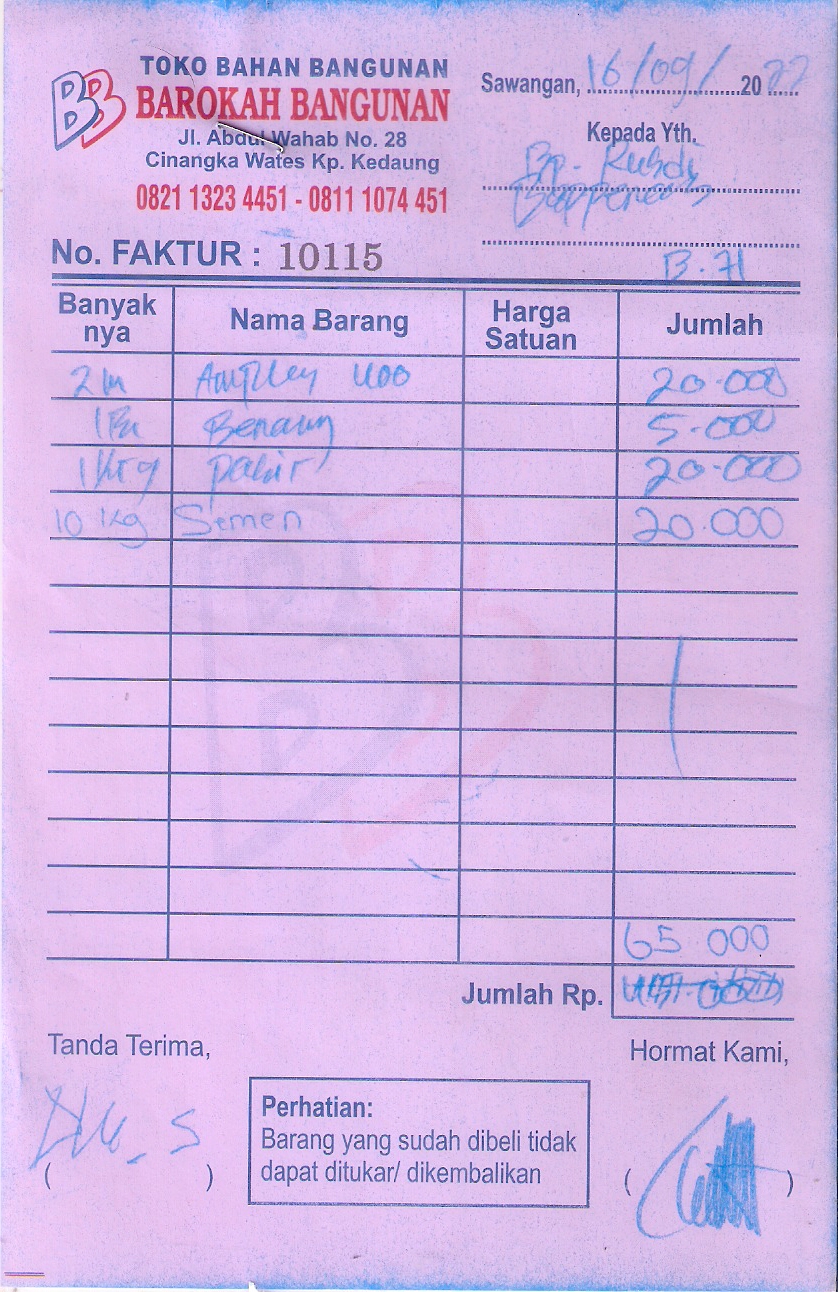 BB
TOKO BAHAN BANGUNAN
BAROKAH BANGUNAN
Jl. Abdul Wahab No. 28
Cinangka Wates Kp. Kedaung
0821 1323 4451 - 0811 1074 451
Sawangan, 16/09/ 2022
Kepada Yth.
Bp. Rusdi
Bappenas
B.71
No. FAKTUR : 10115
Banyak nya Nama Barang Harga Satuan Jumlah
2 m 400 20.000
Benang 5.000
1 Krg pasir 20.000
10 Kg Semen 20.000
65 000
Jumlah Rp.
Tanda Terima, Hormat Kami,
Perhatian:
Barang yang sudah dibeli tidak
dapat ditukar/ dikembalikan
( ) ( )